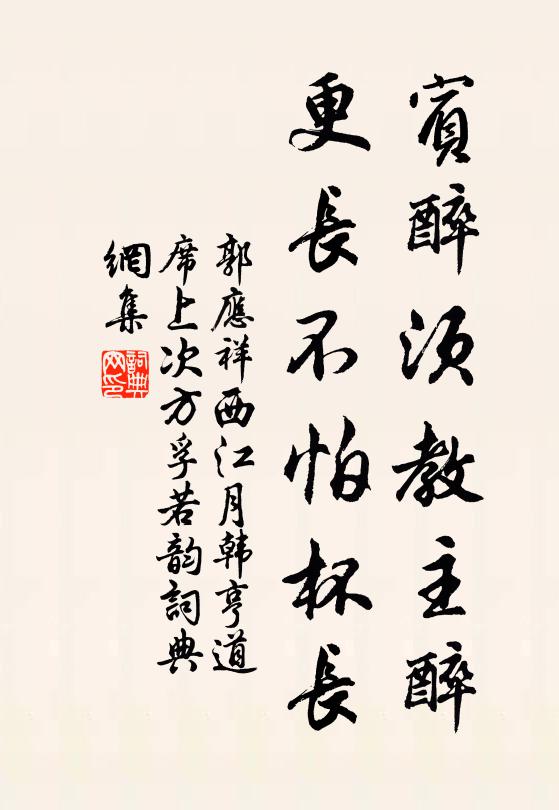 賓醉須教主醉
更長不怕杯長
郭應祥西江月韩亨道
席上次方孚若韵詞典
網集
詞典
网印